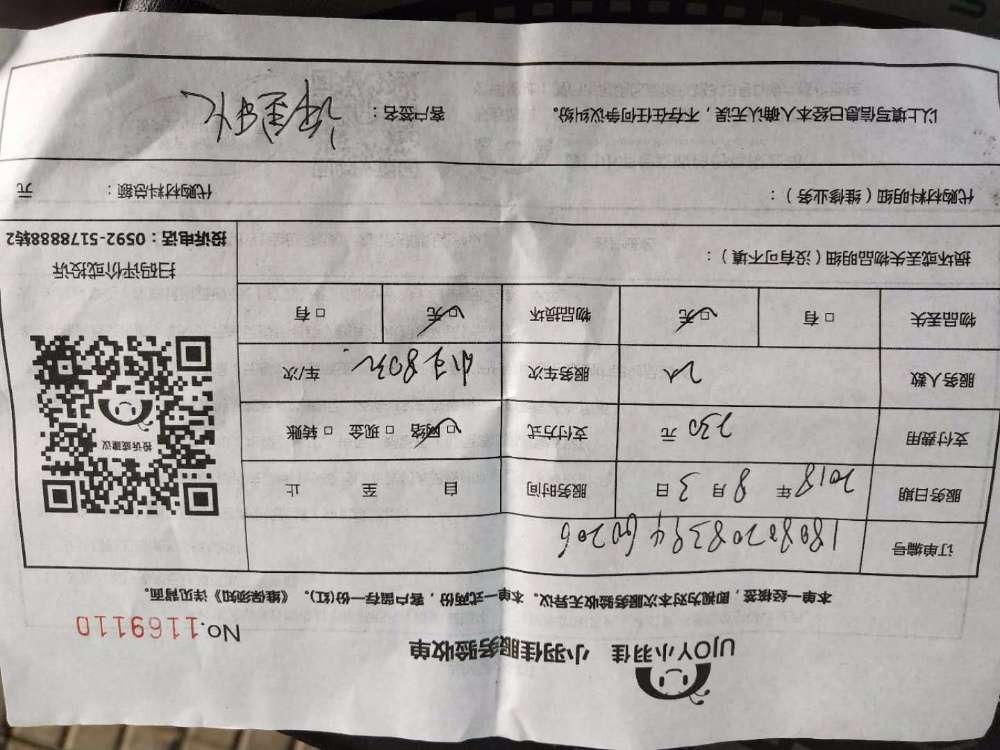 UJOY小羽佳 小羽佳服务验收单
No.1169110
本单一经核签，即视为对本次服务验收无异议。本单一式两份，客户留存一份(红)。《维保须知》详见背面。
订单编号 18080208394460206
服务日期 2018 年 8 月 3 日 服务时间 自 至 止
支付费用 230 元 支付方式 ☑网络 □现金 □转账
服务人数 2人 服务车次 车/次
物品丢失 □有 ☑无 物品损坏 ☑无 □有
投诉或建议
扫码评价或投诉
投诉电话：0592-5178888转2
损坏或丢失物品明细（没有可不填）：
代购材料明细（维修业务）： 代购材料总额： 元
以上填写信息已经本人确认无误，不存在任何争议纠纷。 客户签名：